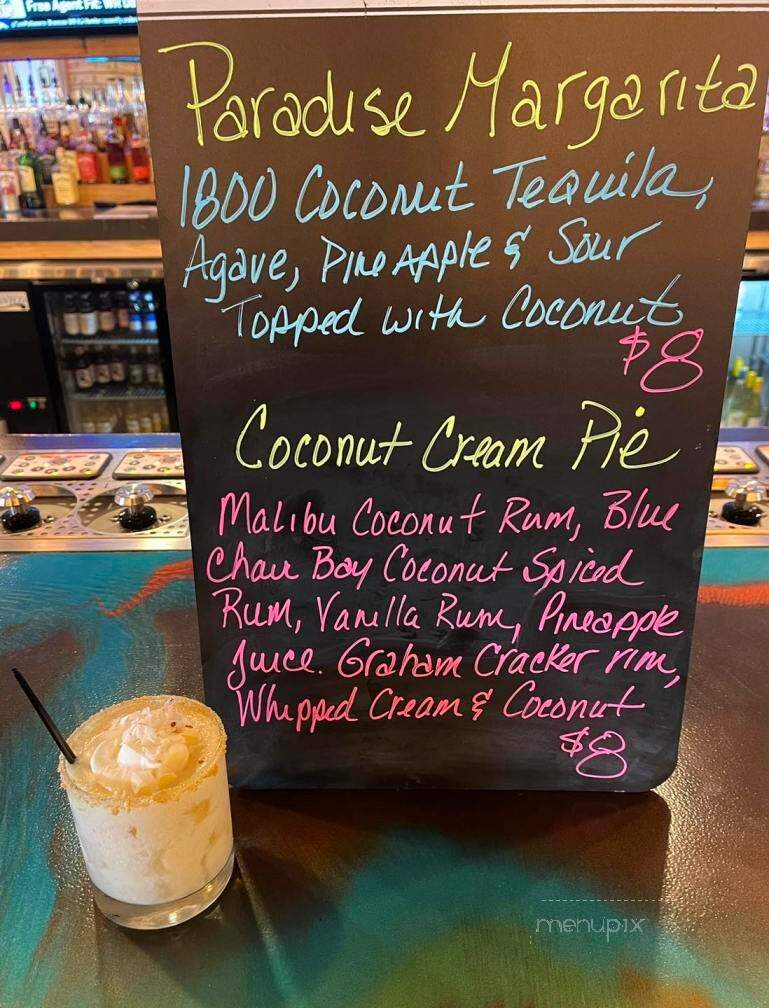 Free Agent Fit: WR
Paradise Margarita
1800 Coconut Tequila,
Agave, PineApple & Sour
Topped with Coconut
$8
Coconut Cream Pie
Malibu Coconut Rum, Blue
Chair Bay Coconut Spiced
Rum, Vanilla Rum, Pineapple
Juice. Graham Cracker rim,
Whipped Cream & Coconut
$8
menupix